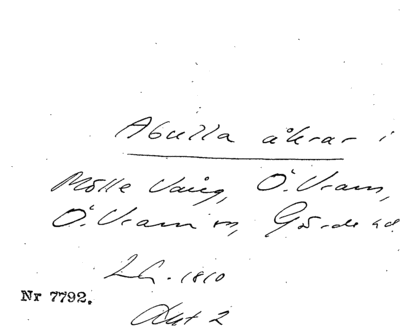 Abulla åkrar i
Mölle Vång, Ö. Vram,
Ö. Vram sn, Gärds hd
LG. 1810
Nr 7792.
Akt 2